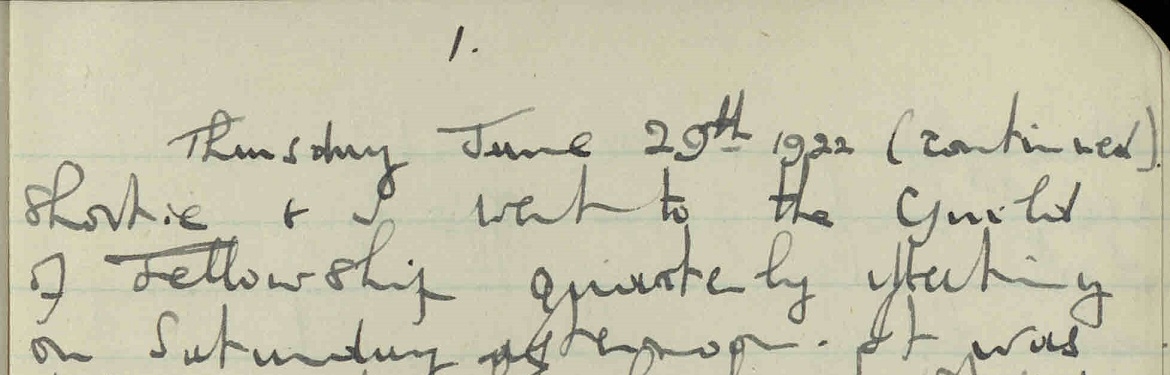 1.
Thursday June 29th 1922 (continued).
Shortie & I went to the Guild
of Fellowship Quarterly Meeting
on Saturday afternoon. It was